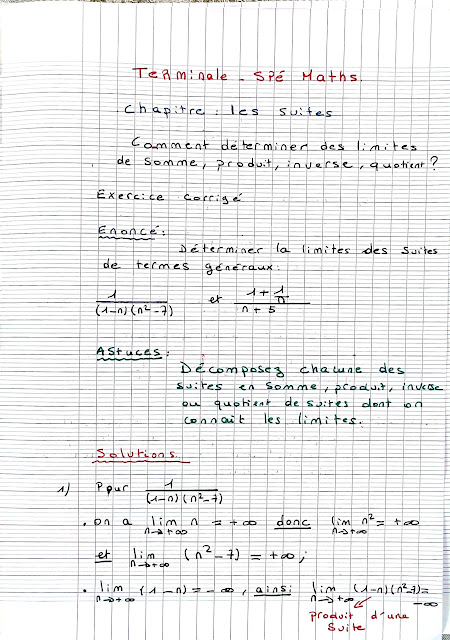 Terminale - Spé Maths.
Chapitre : les suites
Comment déterminer des limites
de somme, produit, inverse, quotient ?
Exercice corrigé
Enoncé :
Déterminer la limites des suites
de termes généraux :
1/((1-n)(n²-7)) et (1+1/n)/(n+5)
Astuces :
Décomposez chacune des
suites en somme, produit, inverse
ou quotient de suites dont on
connait les limites.
Solutions
1) Pour 1/((1-n)(n²-7))
. on a lim n→+∞ n = +∞ donc lim n→+∞ n² = +∞
et lim n→+∞ (n²-7) = +∞ ;
. lim n→+∞ (1-n) = -∞, ainsi lim n→+∞ (1-n)(n²-7) = -∞
produit d'une
suite